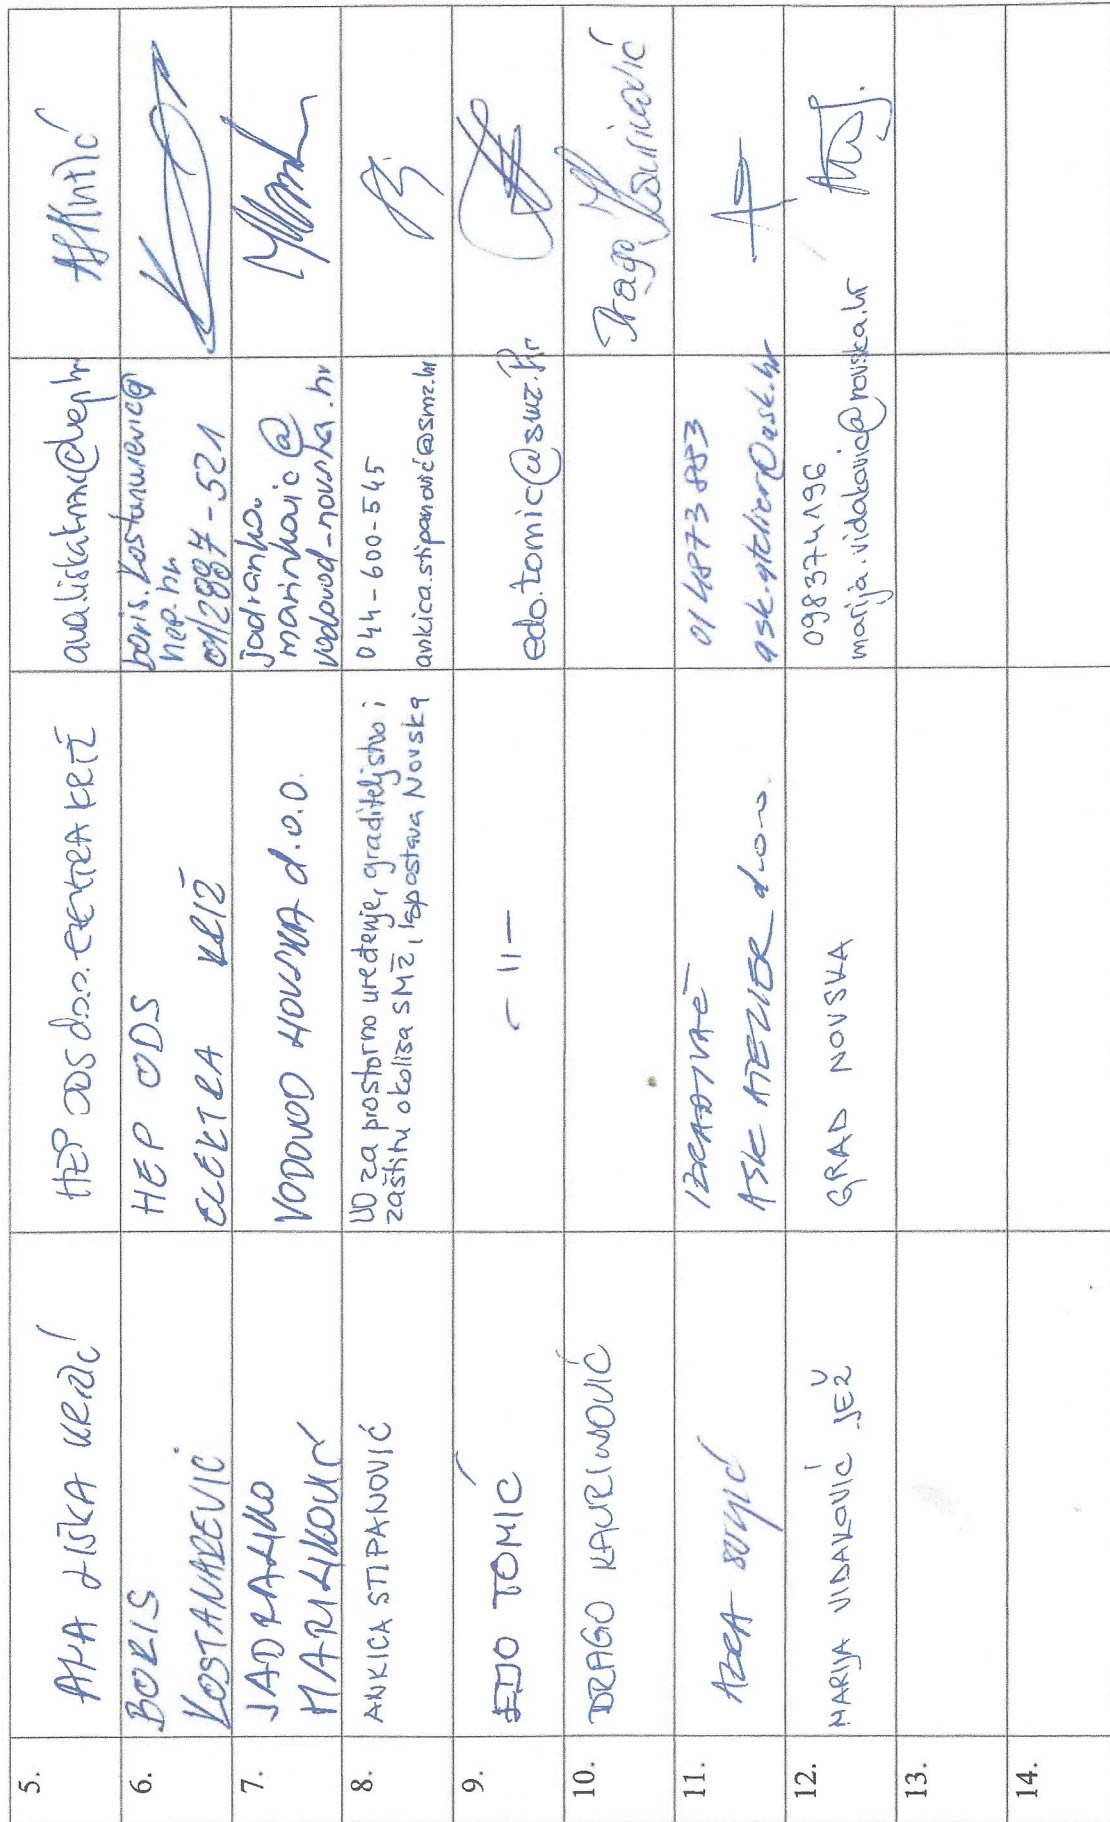 5.
HEP ODS d.o.o. ELEKTRA KRIŽ
6.
BORIS
KOSTANAREVIC
HEP ODS
ELEKTRA KRIŽ
hep.hr
7.
JADRANKO
MARINKOVIĆ
VODOVOD NOVSKA d.o.o.
jadranko.
marinkovic@
vodovod-novska.hr
8.
ANKICA STIPANOVIĆ
UO za prostorno uređenje, graditeljstvo i
zaštitu okoliša SMŽ, Ispostava Novska
044-600-545
ankica.stipanović@smz.hr
9.
EDO TOMIĆ
- 11 -
edo.tomic@smz.hr
10.
DRAGO KAURINOVIĆ
Drago Kaurinović
11.
AZRA
IZRAĐIVAČ
ASK ATELIER d.o.o.
01 4873 883
ask.atelier@ask.hr
12.
MARIJA VIDAKOVIĆ JEŽ
GRAD NOVSKA
098374196
marija.vidakovic@novska.hr
13.
14.